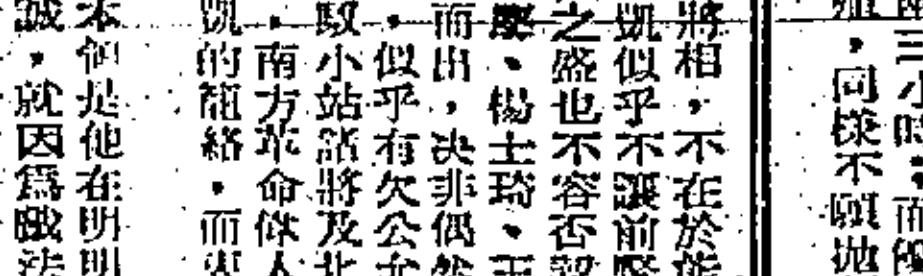 三小時，南
，同樣不願拋
將相，不在於
凱似乎不讓前賢
之盛也不容否認
、楊士琦、王
而出，決非偶然
，似乎有欠公允
小站諸將及北
，南方革命偉人
凱的籠絡，而
本領是他在明明
誠，就因爲戲法